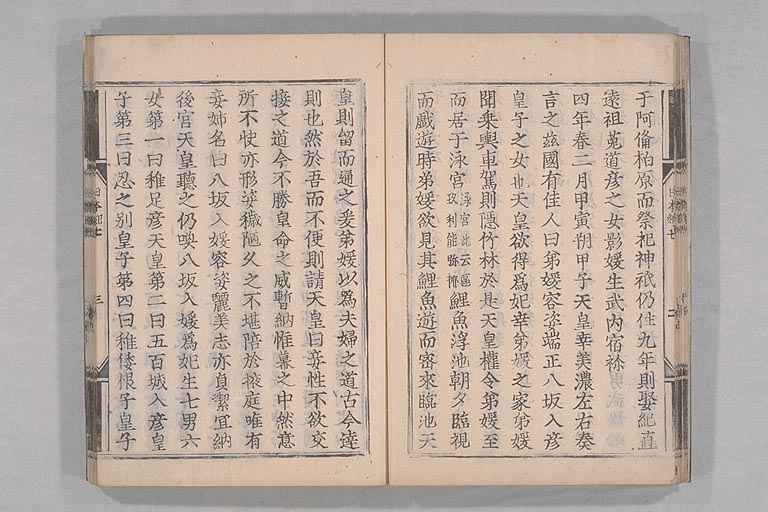 于阿備柏原而祭祀神祇仍住九年則娶紀直
遠祖菟道彦之女影媛生武内宿祢
四年春二月甲寅朔甲子天皇幸美濃左右奏
言之茲國有佳人曰弟媛容姿端正八坂入彦
皇子之女也天皇欲得爲妃幸弟媛之家弟媛
聞乗輿車駕則隱竹林於是天皇權令弟媛至
而居于泳宮泳宮此云區玖利能弥揶鯉魚浮池朝夕臨視
而戲遊時弟媛欲見其鯉魚遊而密來臨池天
皇則留而通之爰弟媛以為夫婦之道古今達
則也然於吾而不便則請天皇曰妾性不欲交
接之道今不勝皇命之威暫納帷幕之中然意
所不快亦形姿穢陋久之不堪陪於掖庭唯有
妾姉名曰八坂入媛容姿麗美志亦貞潔宜納
後宮天皇聽之仍喚八坂入媛爲妃生七男六
女第一曰稚足彦天皇第二曰五百城入彦皇
子第三曰忍之別皇子第四曰稚倭根子皇子
日本紀七
三
二